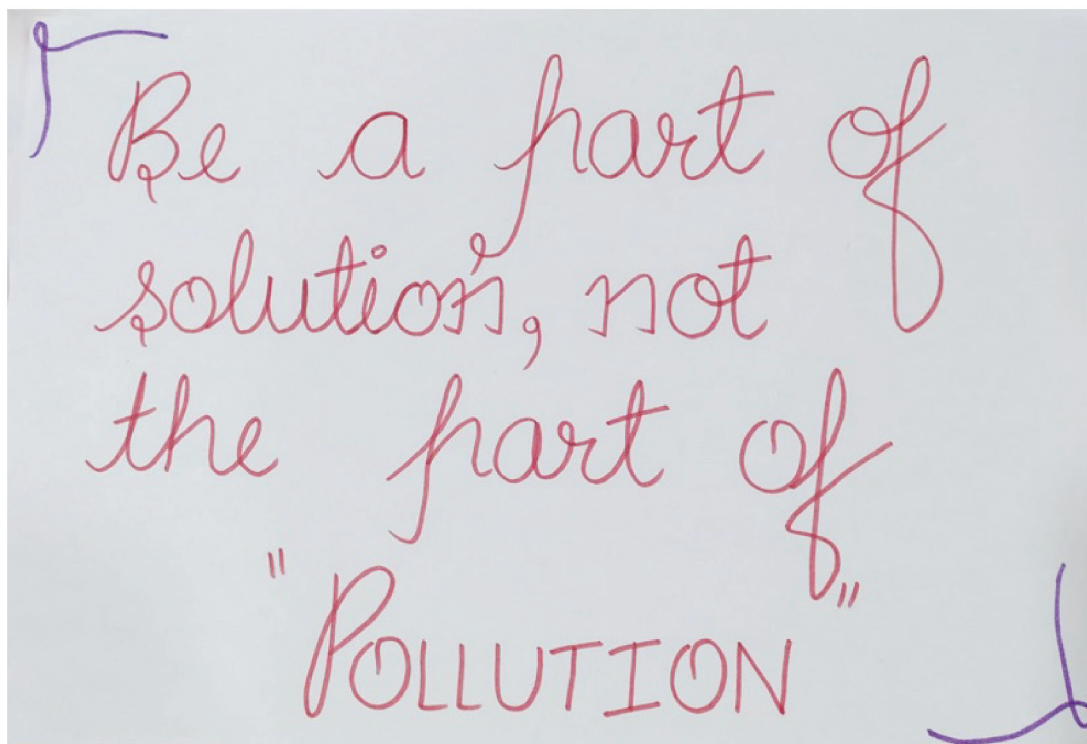 Be a part of
solution, not
the part of
"POLLUTION"